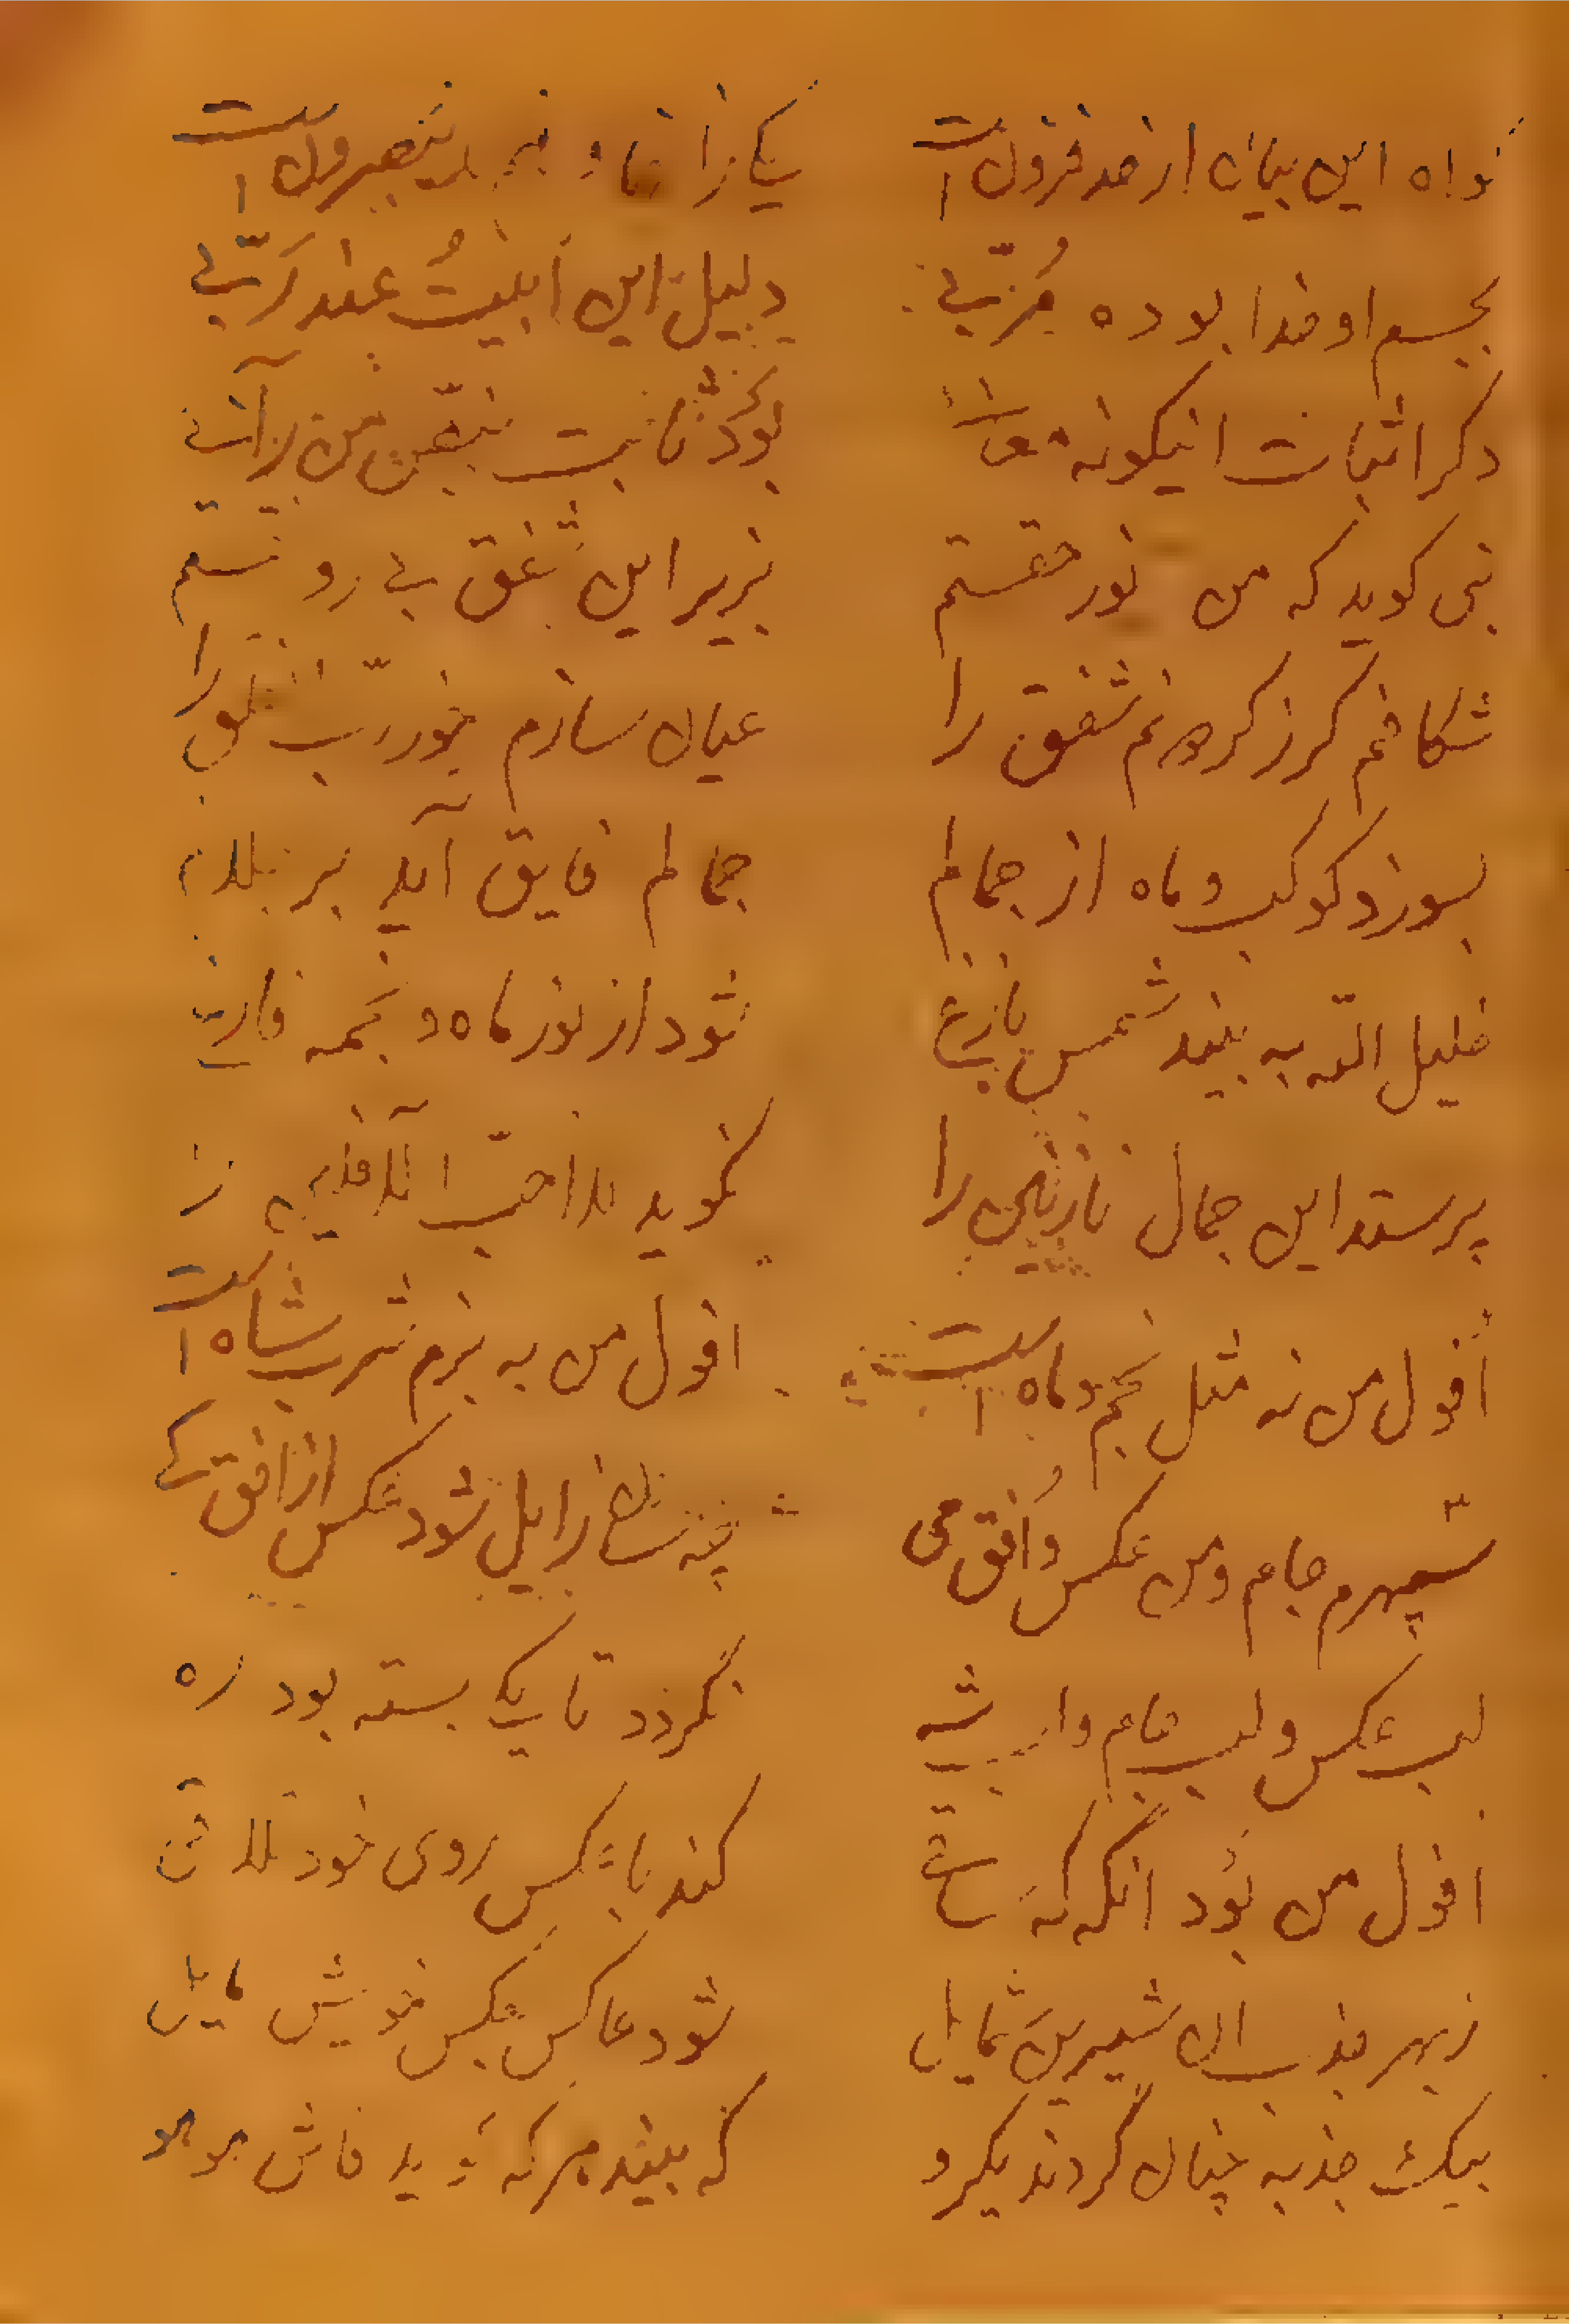 گواه این بیان از حد فزون است
یکی زانها و نحن تبصرون است
بجسم او خدا بوده مربّی
دلیل این ابیتُ عند ربّی
دکر اثبات اینکونه
بود ثابت بنصّ من رآنی
نبی کوید که من نور حقستم
بزیر این شفق بی رونقستم
شکافم کر ز کردونم شفق را
عیان سازم چو ربّ الفلق را
بسوزد کوکب و ماه از جمالم
جمالم فایق آید بر
خلیل اللّه به بیند شمس بازغ
شود از نور ماه و نجمه فارغ
پرستد این جمال نازنین را
نگوید لا احبّ الآفلین را
افول من نه مثل نجم و ماه است
افول من به بزم شرب شاه است
سپهرم جام و من عکس و افق می
چه ساغر زایل شود عکس از افق کی
لب عکس و لب جام و لب شه
نگردد تا یکی بسته بود ره
افول من بود انگه که ساقی
کند با عکس روی خود تلاقی
ز بهر جذب ان شیرین شمایل
شود عاکس بعکس خویش مایل
بیک جذبه چنان گردند یکرو
که بیند هر که کوید فاش هو هو